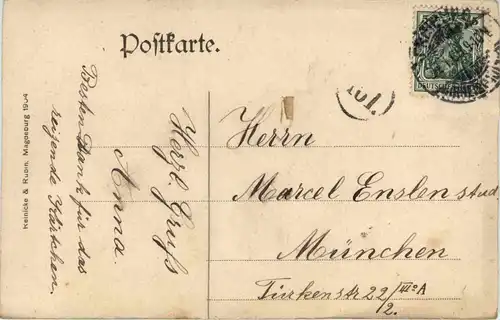 Postkarte.
Herzl. Gruß
Anna.
Besten Dank für das
reizende Kärtchen.
Heinicke & Rubin, Magdeburg 1904
(101.)
Herrn
Marcel Enslen stud
München
Türkenstr 22/2. IIIo A